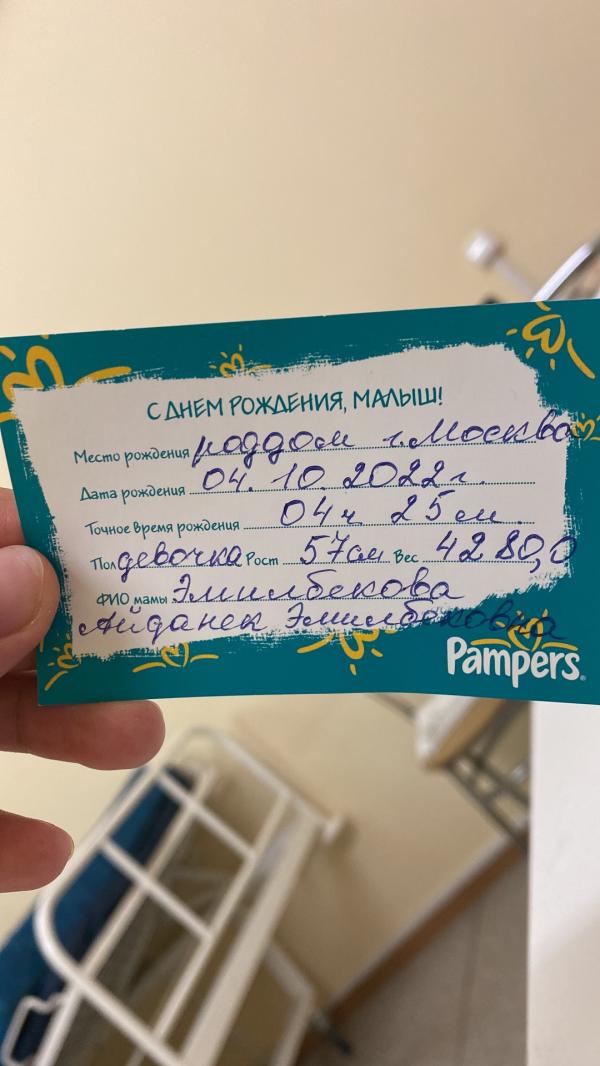 С ДНЕМ РОЖДЕНИЯ, МАЛЫШ!
Место рождения роддом г. Москва
Дата рождения 04. 10. 2022 г.
Точное время рождения 04ч 25м
Пол девочка Рост 57см Вес 4280,0
ФИО мамы Эмилбекова
Айданек Эмилбековна
Pampers